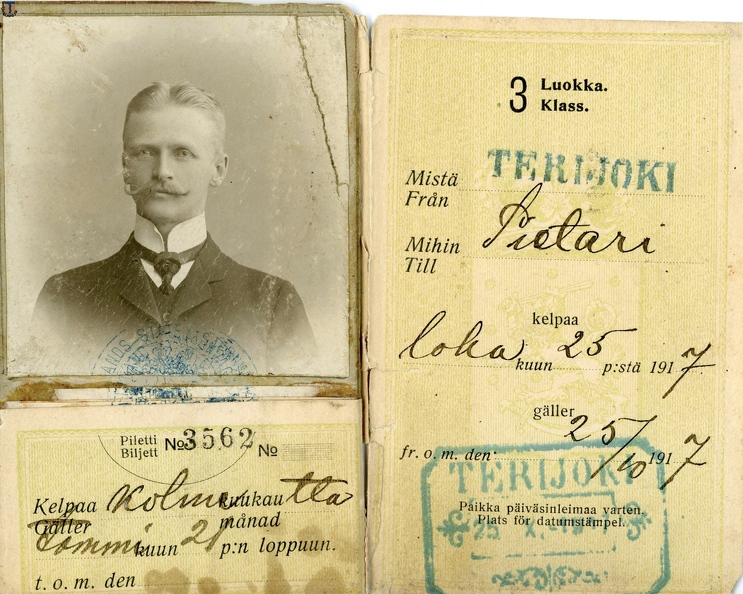 Piletti
Biljett
No 3562 No
Kelpaa Kolme kuukautta
Gäller månad
Tammi kuun 21 p:n loppuun.
t. o. m. den
3 Luokka.
Klass.
Mistä TERIJOKI
Från
Mihin Pietari
Till
kelpaa
loka kuun 25 p:stä 1917
gäller
fr. o. m. den 25/10 1917
TERIJOKI
Paikka päiväsinleimaa varten.
Plats för datumstämpel.